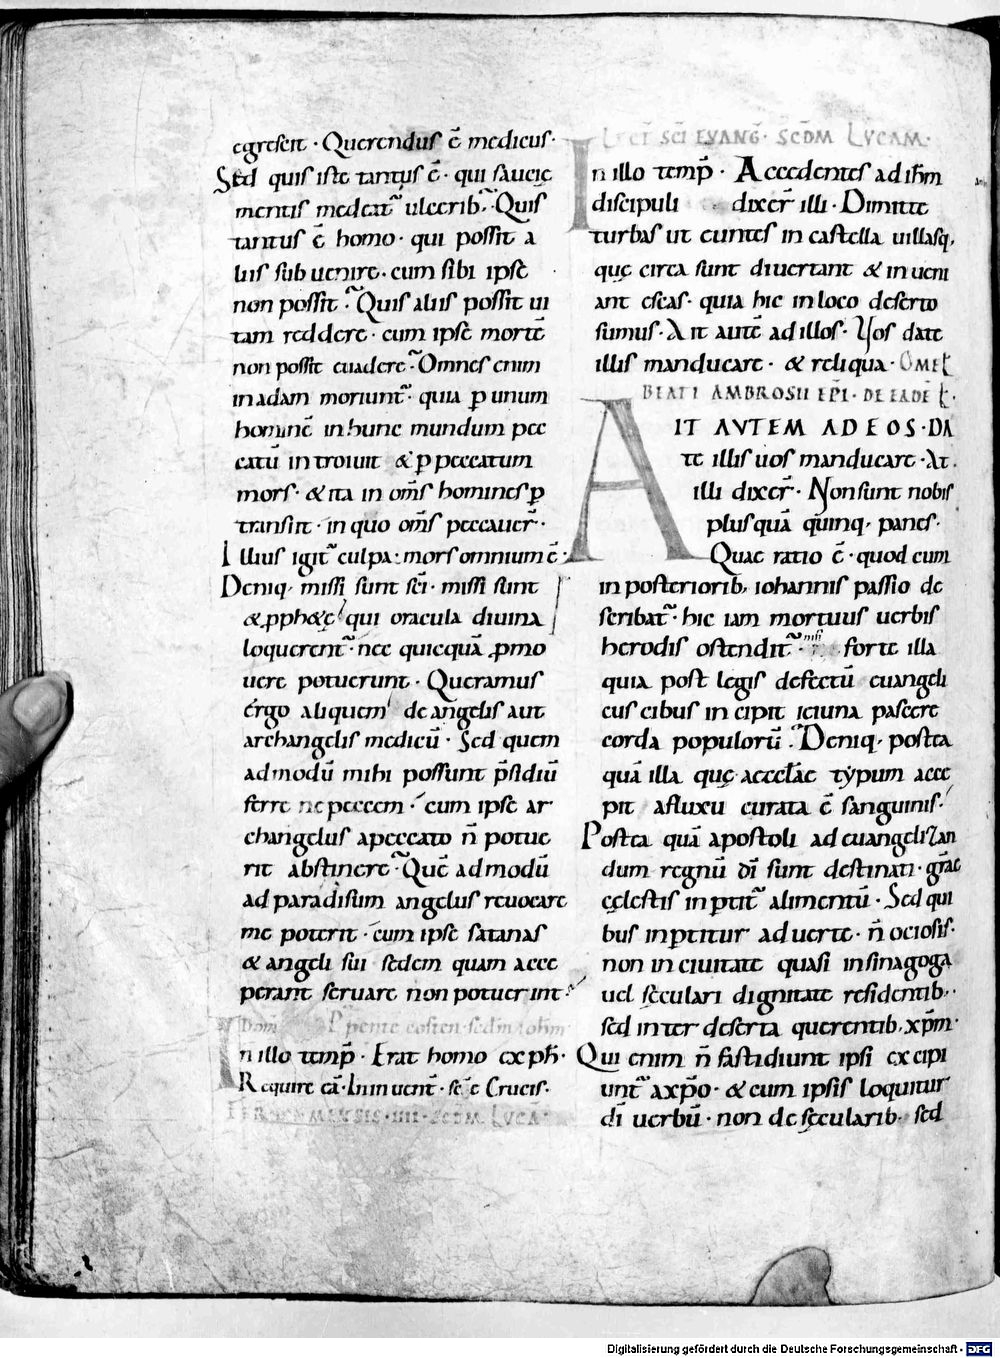 egrescit · Querendus ē medicus ·
Sed quis iste tantus ē · qui saucię
mentis medeat᷑ ulcerib; Quis
tantus ē homo · qui possit a
liis subuenire · cum sibi ipse
non possit · Quis aliis possit ui
tam reddere · cum ipse mortē
non possit euadere · Omnes enim
in adam moriunt᷑ · quia ꝑ unum
hominē in hunc mundum pec
catū introiuit & ꝑ peccatum
mors · & ita in om̄s homines ꝑ
transiit · in quo om̄s peccauer̄ ·
Illius igit᷑ culpa · mors omnium ē ·
Deniq; missi sunt sc̄i · missi sunt
& ꝓph&ę qui oracula diuina
loquerent᷑ · nec quicquā ꝓmo
uere potuerunt · Queramus
ergo aliquem de angelis aut
archangelis medicū · Sed quem
admodū mihi possunt p̄sidiū
ferre ne peccem · cum ipse ar
changelus a peccato n̄ potue
rit abstinere · Quē admodū
ad paradisum angelus reuocare
me poterit · cum ipse satanas
& angeli sui sedem quam acce
perant seruare non potuerint ·
In illo temp̄ · Erat homo ex ph̄ ·
Require eā · In inuent̄ · sc̄e Crucis ·
IEROCENMENSIS · IIII · SCDM LUCĀ
LECT̄ SC̄I EVANḠ · SCDM LVCAM ·
In illo temp̄ · Accedentes ad ih̄m
discipuli dixer̄ illi · Dimitte
turbas ut euntes in castella uillasq;
quę circa sunt diuertant & inueni
ant escas · quia hic in loco deserto
sumus · Ait autē ad illos · Vos date
illis manducare · & reliqua · OMEL̄
BEATI AMBROSII EP̄I · DE EADĒ L̄ ·
AIT AVTEM AD EOS · DA
te illis uos manducare · At
illi dixer̄ · Non sunt nobis
plus quā quinq; panes ·
Quae ratio ē · quod cum
in posteriorib; iohannis passio de
scribat᷑ · hic iam mortuus uerbis
herodis ostendit᷑ · nisi forte illa
quia post legis defectū euangeli
cus cibus incipit ieiuna pascere
corda populorū · Deniq; postea
quā illa quę aeccl̄ae typum acce
pit a fluxu curata ē sanguinis ·
Postea quā apostoli ad euangelizan
dum regnū dī sunt destinati · gr̄ae
cęlestis inꝑtit᷑ alimentū · Sed qui
bus inꝑtitur aduerte · n̄ ociosis ·
non in ciuitate quasi in sinagoga
uel sęculari dignitate residentib;
sed inter deserta querentib; xp̄m ·
Qui enim n̄ fastidiunt ipsi excipi
unt᷑ a xp̄o · & cum ipsis loquitur
dī uerbū · non de sęcularib; sed
Digitalisierung gefördert durch die Deutsche Forschungsgemeinschaft - DFG